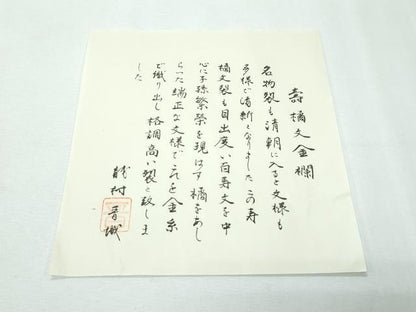 壽橘文金襴
名物裂も清朝に入ると文様も
多様で清新となりました この寿
橘文裂も目出度い百寿文を中
心に子孫繁榮を現はす橘をあし
らった端正な文様でこれを金糸
で織り出し格調高い裂と致しま
した
晋城